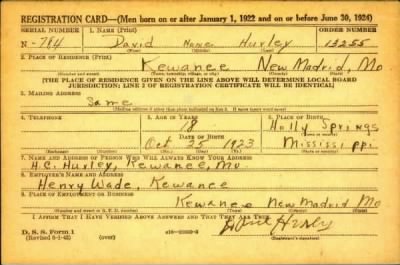 REGISTRATION CARD—(Men born on or after January 1, 1922 and on or before June 30, 1924)
SERIAL NUMBER 1. NAME (Print) ORDER NUMBER
N-784 David None Huxley 13255
(First) (Middle) (Last)
2. PLACE OF RESIDENCE (Print)
Kewanee New Madrid, Mo
(Number and street) (Town, township, village, or city) (County) (State)
[THE PLACE OF RESIDENCE GIVEN ON THE LINE ABOVE WILL DETERMINE LOCAL BOARD
JURISDICTION; LINE 2 OF REGISTRATION CERTIFICATE WILL BE IDENTICAL]
3. MAILING ADDRESS
Same
[Mailing address if other than place indicated on line 2. If same insert word same]
4. TELEPHONE 5. AGE IN YEARS 6. PLACE OF BIRTH
18 Holly Springs
DATE OF BIRTH
Oct 25 1923 Mississippi
7. NAME AND ADDRESS OF PERSON WHO WILL ALWAYS KNOW YOUR ADDRESS
H.C. Huxley, Kewanee, Mo.
8. EMPLOYER'S NAME AND ADDRESS
Henry Wade, Kewanee
9. PLACE OF EMPLOYMENT OR BUSINESS
Kewanee New Madrid Mo
(Number and street or R. F. D. number) (Town) (County) (State)
I AFFIRM THAT I HAVE VERIFIED ABOVE ANSWERS AND THAT THEY ARE TRUE.
D. S. S. Form 1
(Revised 6-9-42) (over)
(Registrant's signature)